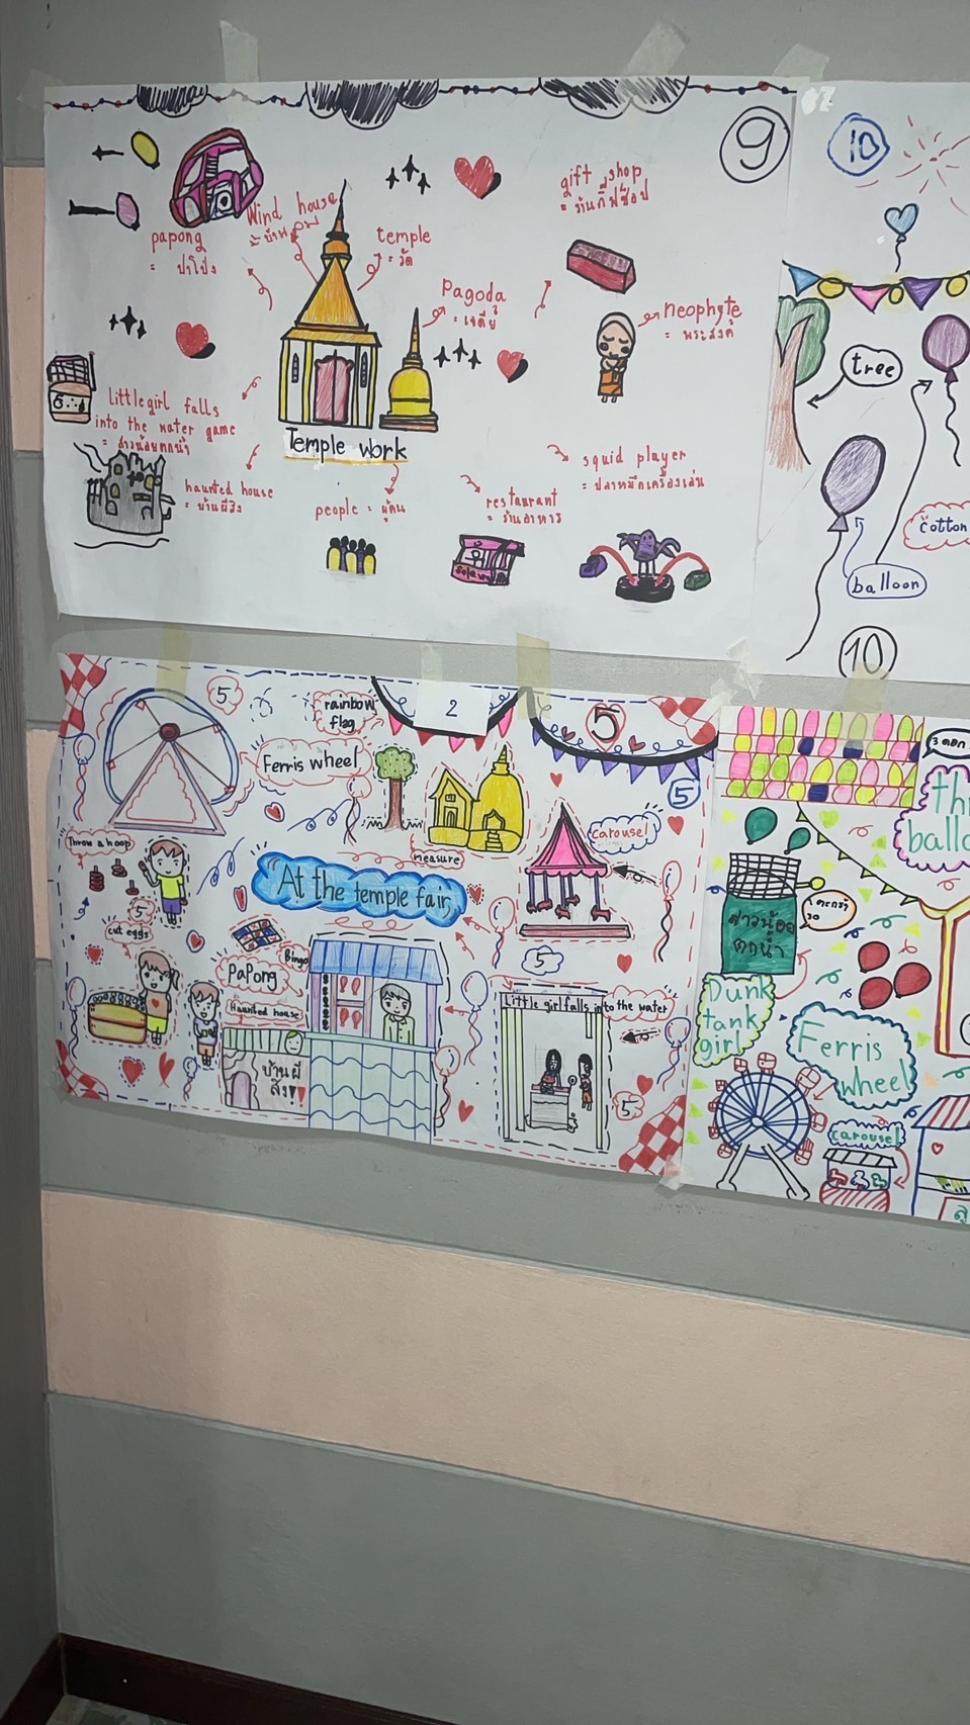 9
papong
= ปาโป่ง
Wind house
= บ้านลม
temple
= วัด
Pagoda
= เจดีย์
gift shop
= ร้านกิ๊ฟช้อป
neophyte
= พระสงฆ์
Little girl falls
into the water game
= สาวน้อยตกน้ำ
haunted house
= บ้านผีสิง
Temple work
people = ผู้คน
restaurant
= ร้านอาหาร
squid player
= ปลาหมึกเครื่องเล่น
10
tree
cotton
balloon
10
5
rainbow
flag
2
5
Ferris wheel
5
Throw a hoop
measure
carousel
At the temple fair
5
cut eggs
Bingo
PaPong
Haunted house
บ้านผี
สิง!!
5
Little girl falls into the water
5
3 ดอก
th
ballo
สาวน้อย
ตกน้ำ
1 ตะกร้า
30
Dunk
tank
girl
Ferris
wheel
carousel